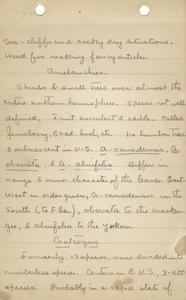 Sea-cliffs and rocky dry situations.
Used for making fancy articles.
Amelanchier.
Shrubs & small trees over almost the
entire northern hemisphere. Species not well
defined. Fruit succulent & edible. Called
Juneberry, Shad bush, etc. no. number trees
3 arborescent in U.S. A. canadensis, A.
obovata, & A. alnifolia. Differ in
range & minor characters of the leaves. East
West in order given, A. canadensis in the
South (to Fla.), obovata to the Macken-
zie, & alnifolia to the Yukon.
Crataegus
Formerly, 13 species, now divided into
numberless species. Centers in E. U.S., 3-400
species. Probably in a rapid state of